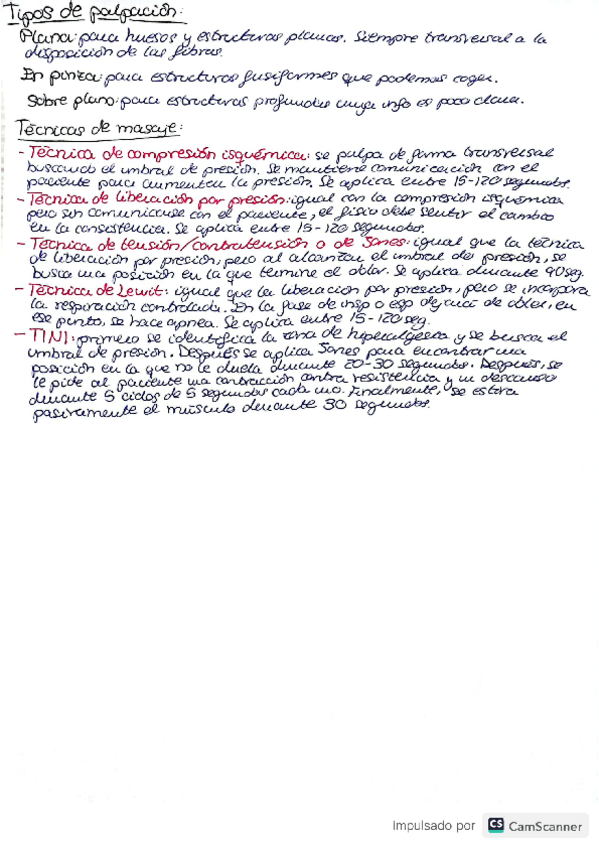 Tipos de palpación:
Plana: para huesos y estructuras planas. Siempre transversal a la
disposición de las fibras.
En pinza: para estructuras fusiformes que podemos coger.
Sobre plano: para estructuras profundas cuya info es poco clara.
Técnicas de masaje:
- Técnica de compresión isquémica: se palpa de forma transversal
buscando el umbral de presión. Se mantiene comunicación con el
paciente para aumentar la presión. Se aplica entre 15-120 segundos.
- Técnica de liberación por presión: igual con la compresión isquémica
pero sin comunicarse con el paciente, el fisio debe sentir el cambio
en la consistencia. Se aplica entre 15-120 segundos.
- Técnica de tensión/contratensión o de Jones: igual que la técnica
de liberación por presión, pero al alcanzar el umbral de presión, se
busca una posición en la que termine el dolor. Se aplica durante 90seg.
- Técnica de Lewit: igual que la liberación por presión, pero se incorpora
la respiración controlada. En la fase de insp o esp dejará de doler, en
ese punto, se hace apnea. Se aplica entre 15-120 seg.
- TINI: primero se identifica la zona de hiperalgesia y se busca el
umbral de presión. Después se aplica Jones para encontrar una
posición en la que no le duela durante 20-30 segundos. Después, se
le pide al paciente una contracción contra resistencia y un descanso
durante 5 ciclos de 5 segundos cada uno. Finalmente, se estira
pasivamente el músculo durante 30 segundos.
Impulsado por CS CamScanner